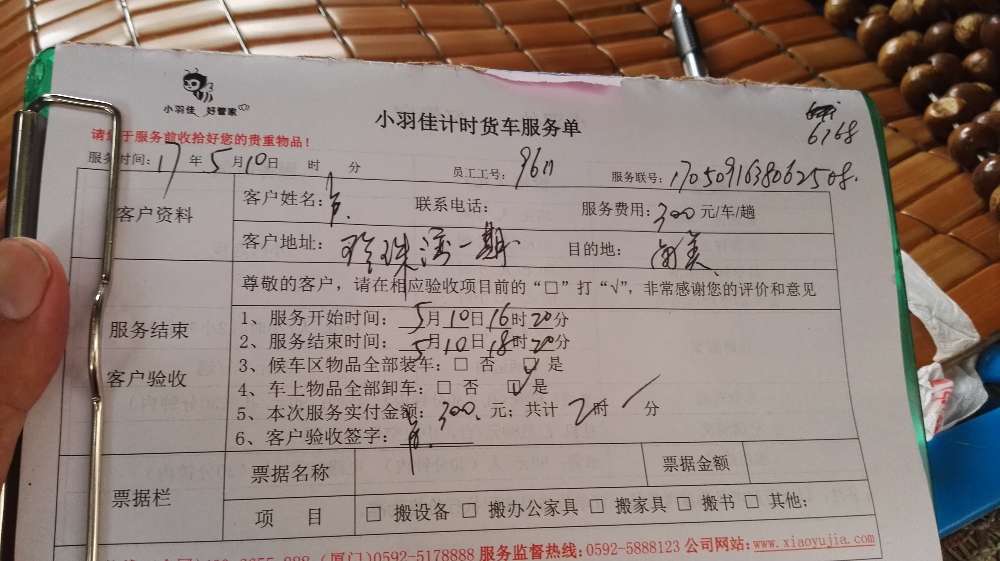 小羽佳 好管家
小羽佳计时货车服务单
6768
请您于服务前收拾好您的贵重物品！
服务时间：17年5月10日 时 分 员工工号：9611 服务联号：1705091638062508.
客户资料
客户姓名： 联系电话： 服务费用：300元/车/趟
客户地址：珍珠湾一期 目的地：
服务结束
客户验收
尊敬的客户，请在相应验收项目前的“□”打“√”，非常感谢您的评价和意见
1、服务开始时间：5月10日16时20分
2、服务结束时间：5月10日18时20分
3、候车区物品全部装车：□ 否 ☑ 是
4、车上物品全部卸车：□ 否 ☑ 是
5、本次服务实付金额：300.元；共计 2时 / 分
6、客户验收签字：
票据栏
票据名称 票据金额
项 目 □ 搬设备 □ 搬办公家具 □ 搬家具 □ 搬书 □ 其他：
(厦门)0592-5178888 服务监督热线：0592-5888123 公司网站：www.xiaoyujia.com